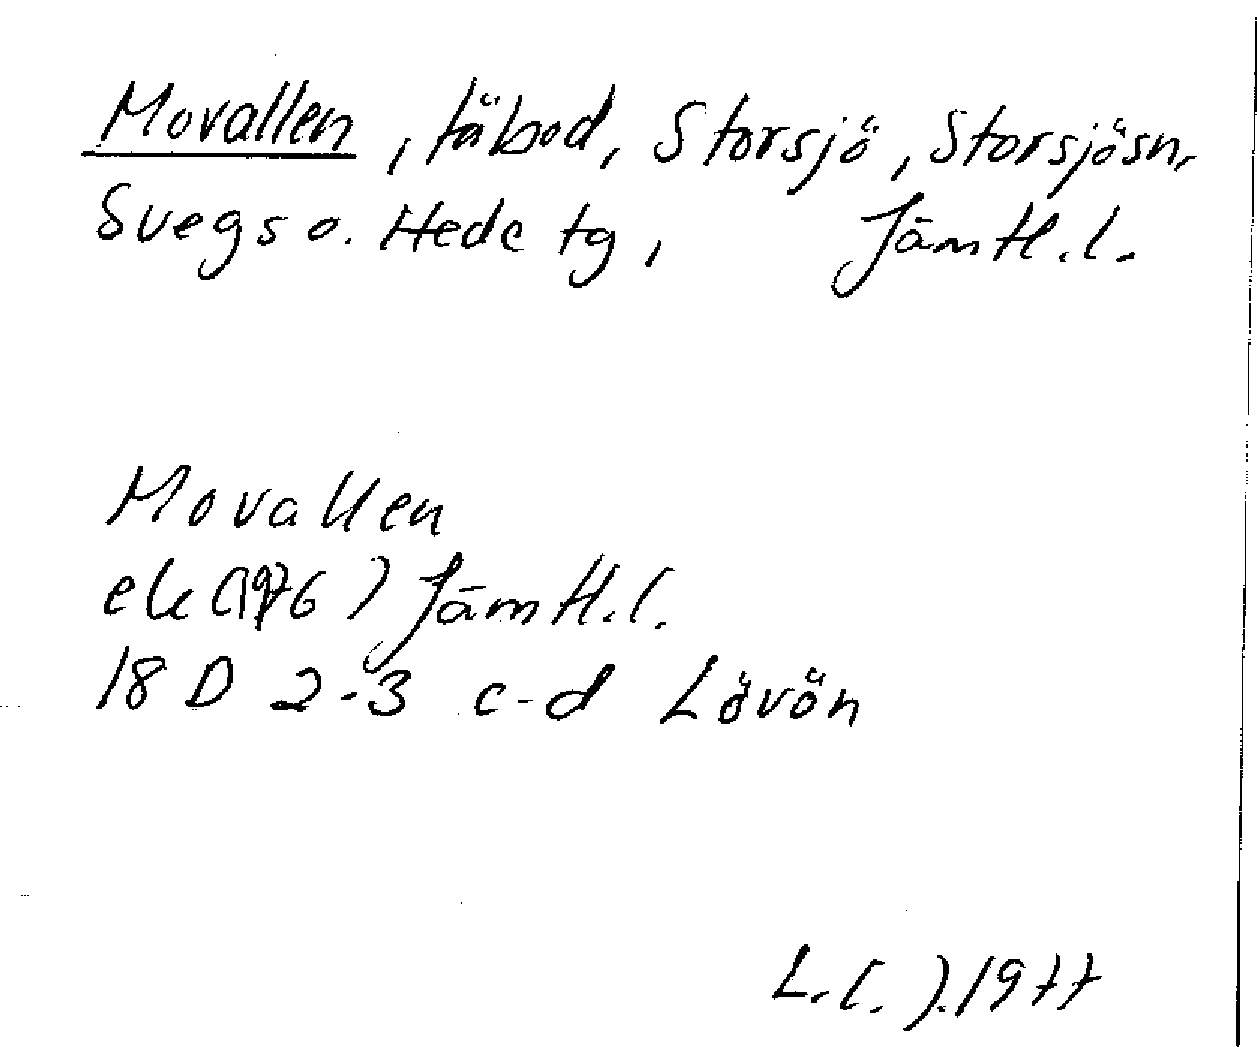 Movallen, fäbod, Storsjö, Storsjösn,
Svegs o. Hede tg, Jämtl.l.
Movallen
ek (1976) Jämtl.l.
18 D 2-3 c-d Lövön
1977